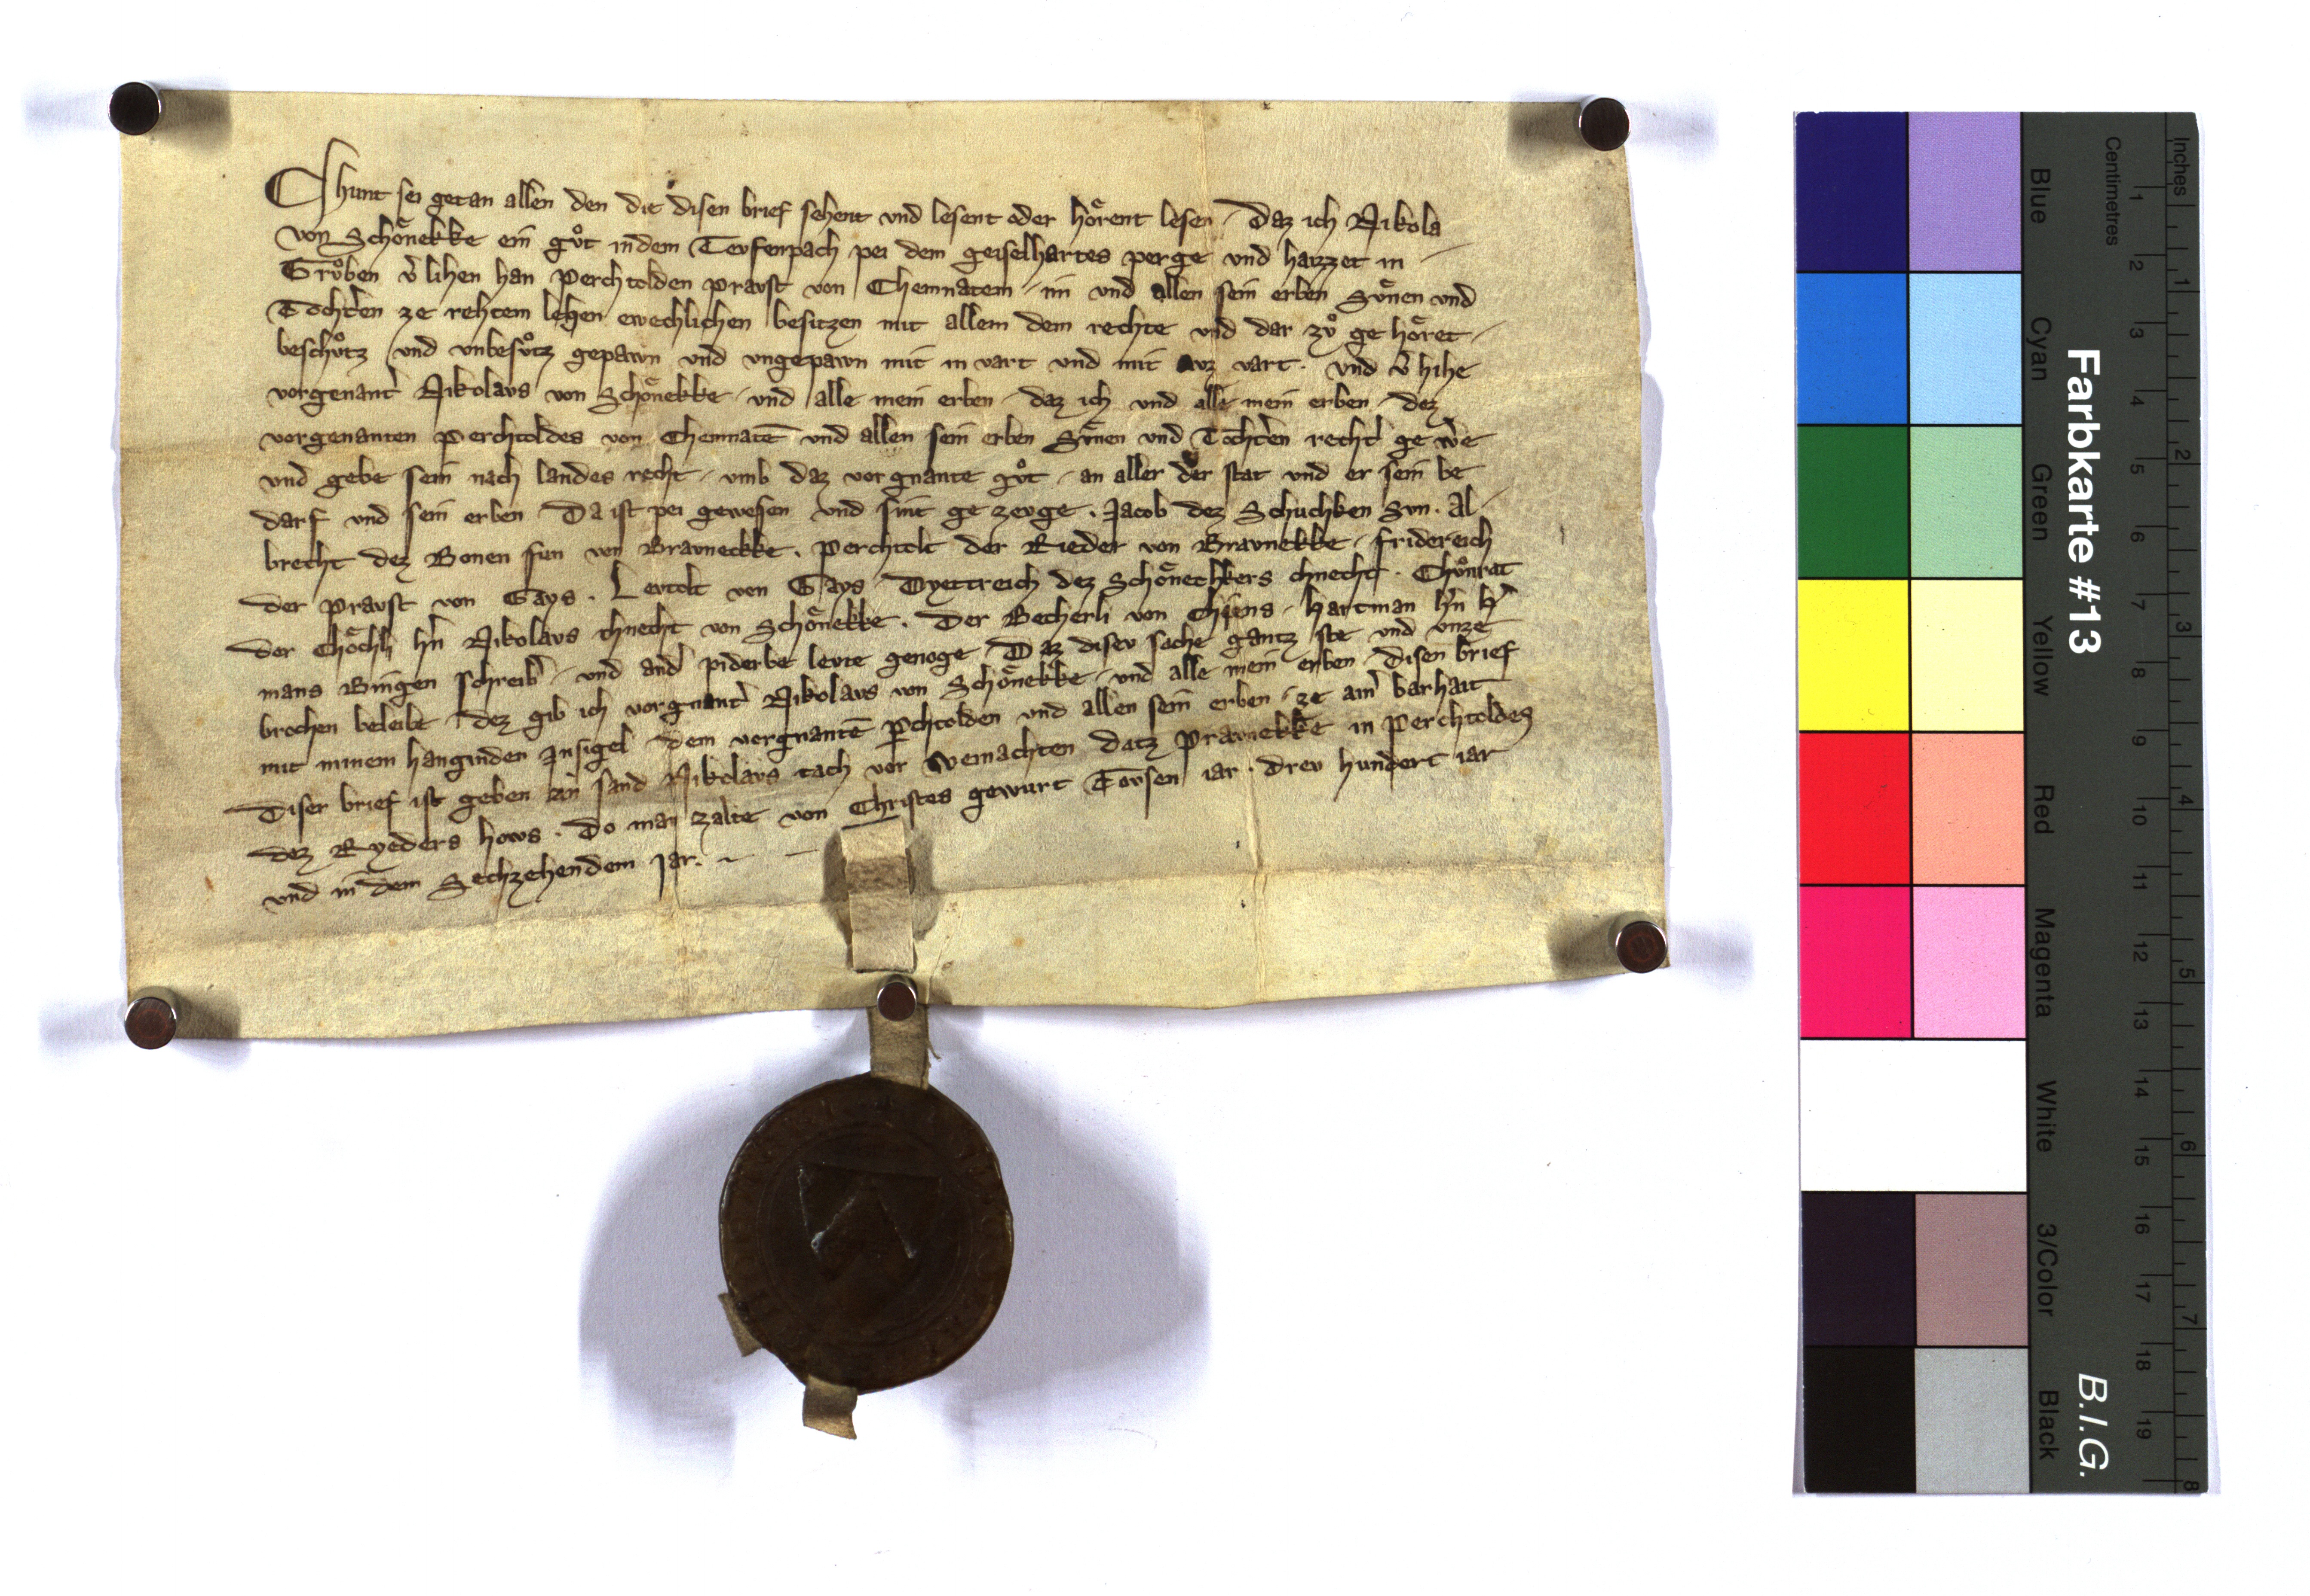 Chunt sei getan allen den die disen brief sehent vnd lesent oder hoͤrent lesen / Daz ich Nikola
von Schoͤnekke ein guͦt in dem Tevfenpach pei dem geiselhartes perge vnd haizzet in /
Gruͦben v̓lihen han Perchtolden pravst von Chemnatem / im vnd allen sein erben Suͤnen vnd
Tochtˀen ze rehtem lehen ewechlichen besitzen mit allem dem rechte vnd dar zuͦ ge hoͤret /
beschuͦtz vnd vnbesuͦtz gepawn vnd vngepawn mit in vart vnd mit avz vart . vnd v̓hihe
vorgenantˀ Nikolavs von Schoͤnekke / vnd alle mein erben / daz ich vnd alle mein erben / dez
vorgenanten Perchtoldes von Chemnatē vnd allen sein erben Suͤnen vnd Tochtˀen rechtˀ ge wˀe
vnd gebe sein nach landes recht / vmb daz vor gnante guͦt / an aller der stat vnd er sein be
darf vnd sein erben Da ist pei gewesen vnd sint ge zevge . Jacob dez Schuchken Svn . Al /
brecht dez Bonen sun von Bravneckke . Perchtolt der Rieder von Bravnekke / fridereich
der Pravst von Gays . Levtolt von Gays / Dyettreich dez Schoͤnechkers chnecht . Chuͦnrat
der Choͤchli hˀn Nikolavs chnecht von Schoͤnekke . Der Becherli von Chiens / hartman hˀn hˀ
mans Bingen schreibˀ / vnd andˀ piderbe levte genoge / Daz disev sache gantz ste vnd vnze
brochen beleibe / dez gib ich vorgnantˀ Nikolavs von Schoͤnekke / vnd alle mein erben / disen brief
mit minem hanginden Insigel dem vorgnantē pchtolden vnd allen sein erben / ze ainˀ barhait
Diser brief ist geben an sand Nikolavs tach vor weinachten datz Pravnekke in Perchtoldes
dez Ryeders hovs . Do man zalte von Christes gewurt Tovsen iar . drev hundert iar
vnd in dem Sechzehendem Jar .
Farbkarte #13
B.I.G.
Inches
1 2 3 4 5 6 7 8
Centimetres
1 2 3 4 5 6 7 8 9 10 11 12 13 14 15 16 17 18 19
Blue Cyan Green Yellow Red Magenta White 3/Color Black